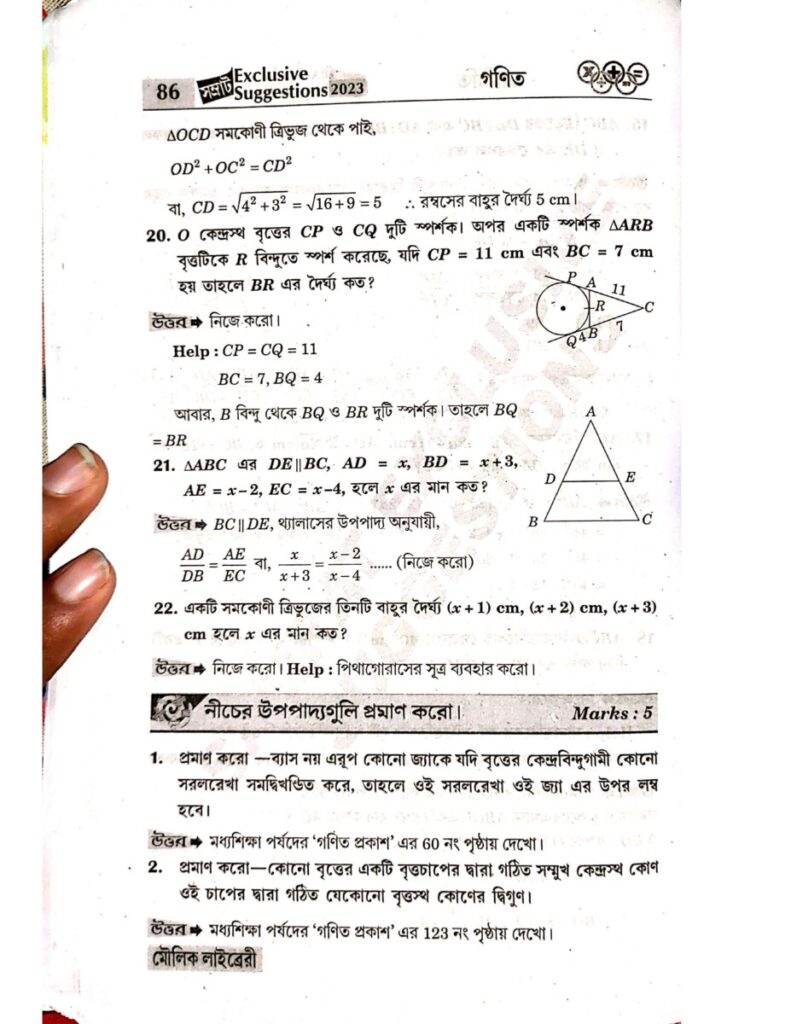 86 সম্রাট Exclusive Suggestions 2023 গণিত
ΔOCD সমকোণী ত্রিভুজ থেকে পাই,
OD² + OC² = CD²
বা, CD = √4² + 3² = √16 + 9 = 5 ∴ রম্বসের বাহুর দৈর্ঘ্য 5 cm।
20. O কেন্দ্রস্থ বৃত্তের CP ও CQ দুটি স্পর্শক। অপর একটি স্পর্শক ΔARB
বৃত্তটিকে R বিন্দুতে স্পর্শ করেছে, যদি CP = 11 cm এবং BC = 7 cm
হয় তাহলে BR এর দৈর্ঘ্য কত?
P A 11
R C
7
Q 4 B
উত্তর ➡ নিজে করো।
Help : CP = CQ = 11
BC = 7, BQ = 4
আবার, B বিন্দু থেকে BQ ও BR দুটি স্পর্শক। তাহলে BQ
= BR
21. ΔABC এর DE || BC, AD = x, BD = x+3,
AE = x–2, EC = x–4, হলে x এর মান কত?
A
D E
B C
উত্তর ➡ BC || DE, থ্যালাসের উপপাদ্য অনুযায়ী,
AD/DB = AE/EC বা, x/x+3 = x–2/x–4 ...... (নিজে করো)
22. একটি সমকোণী ত্রিভুজের তিনটি বাহুর দৈর্ঘ্য (x + 1) cm, (x + 2) cm, (x + 3)
cm হলে x এর মান কত?
উত্তর ➡ নিজে করো। Help : পিথাগোরাসের সূত্র ব্যবহার করো।
নীচের উপপাদ্যগুলি প্রমাণ করো। Marks : 5
1. প্রমাণ করো —ব্যাস নয় এরূপ কোনো জ্যাকে যদি বৃত্তের কেন্দ্রবিন্দুগামী কোনো
সরলরেখা সমদ্বিখণ্ডিত করে, তাহলে ওই সরলরেখা ওই জ্যা এর উপর লম্ব
হবে।
উত্তর ➡ মধ্যশিক্ষা পর্ষদের ‘গণিত প্রকাশ’ এর 60 নং পৃষ্ঠায় দেখো।
2. প্রমাণ করো—কোনো বৃত্তের একটি বৃত্তচাপের দ্বারা গঠিত সম্মুখ কেন্দ্রস্থ কোণ
ওই চাপের দ্বারা গঠিত যেকোনো বৃত্তস্থ কোণের দ্বিগুণ।
উত্তর ➡ মধ্যশিক্ষা পর্ষদের ‘গণিত প্রকাশ’ এর 123 নং পৃষ্ঠায় দেখো।
মৌলিক লাইব্রেরী